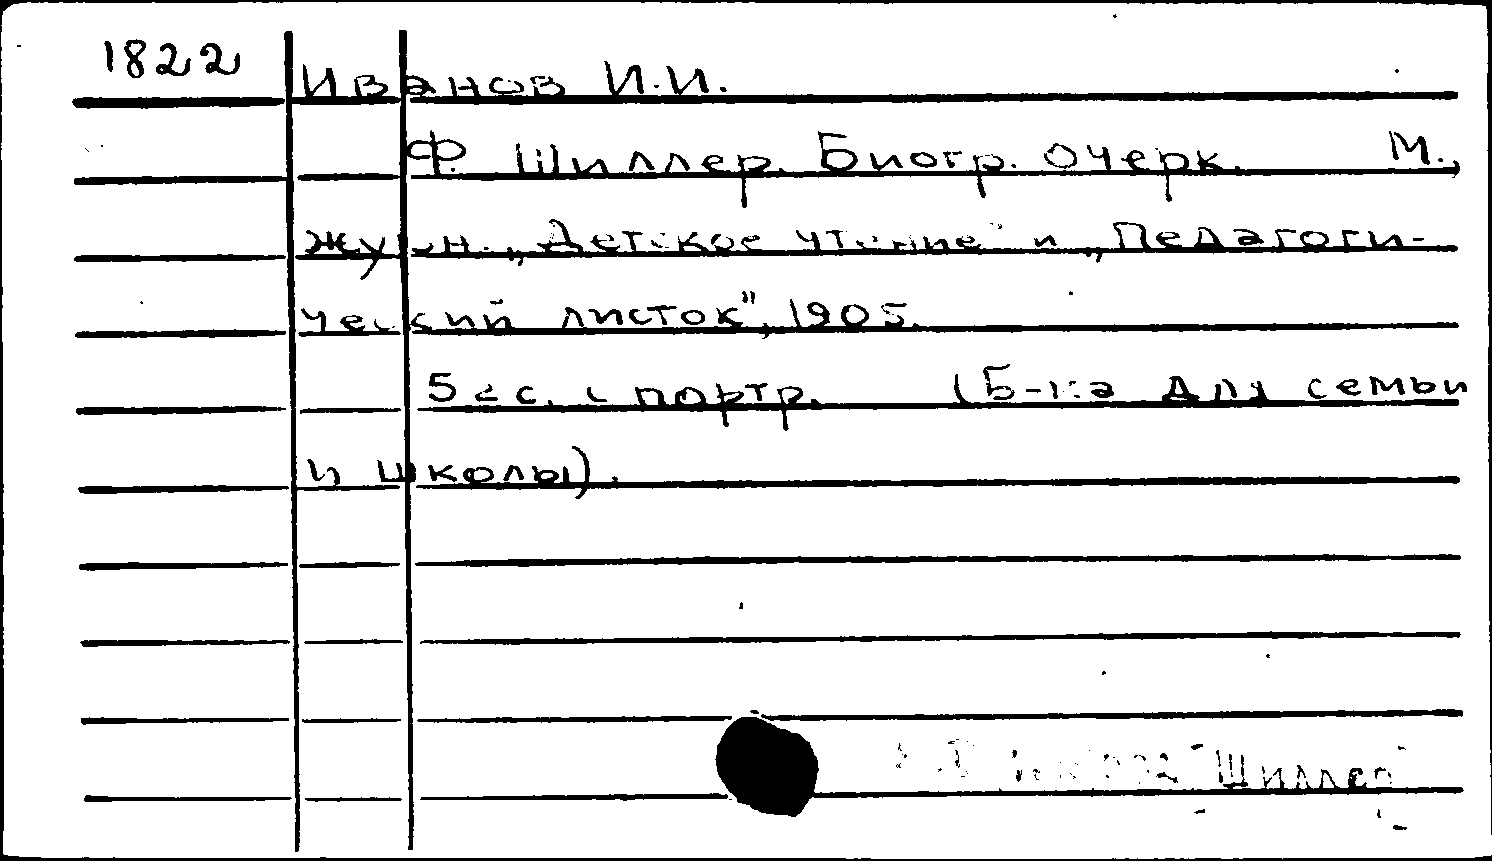 1822 Иванов И.И.
Ф. Шиллер. Биогр. очерк. М.,
журн. „Детское чтение" и „Педагоги-
ческий листок", 1905.
с. с портр. (Б-ка для семьи
и школы).
Шиллер